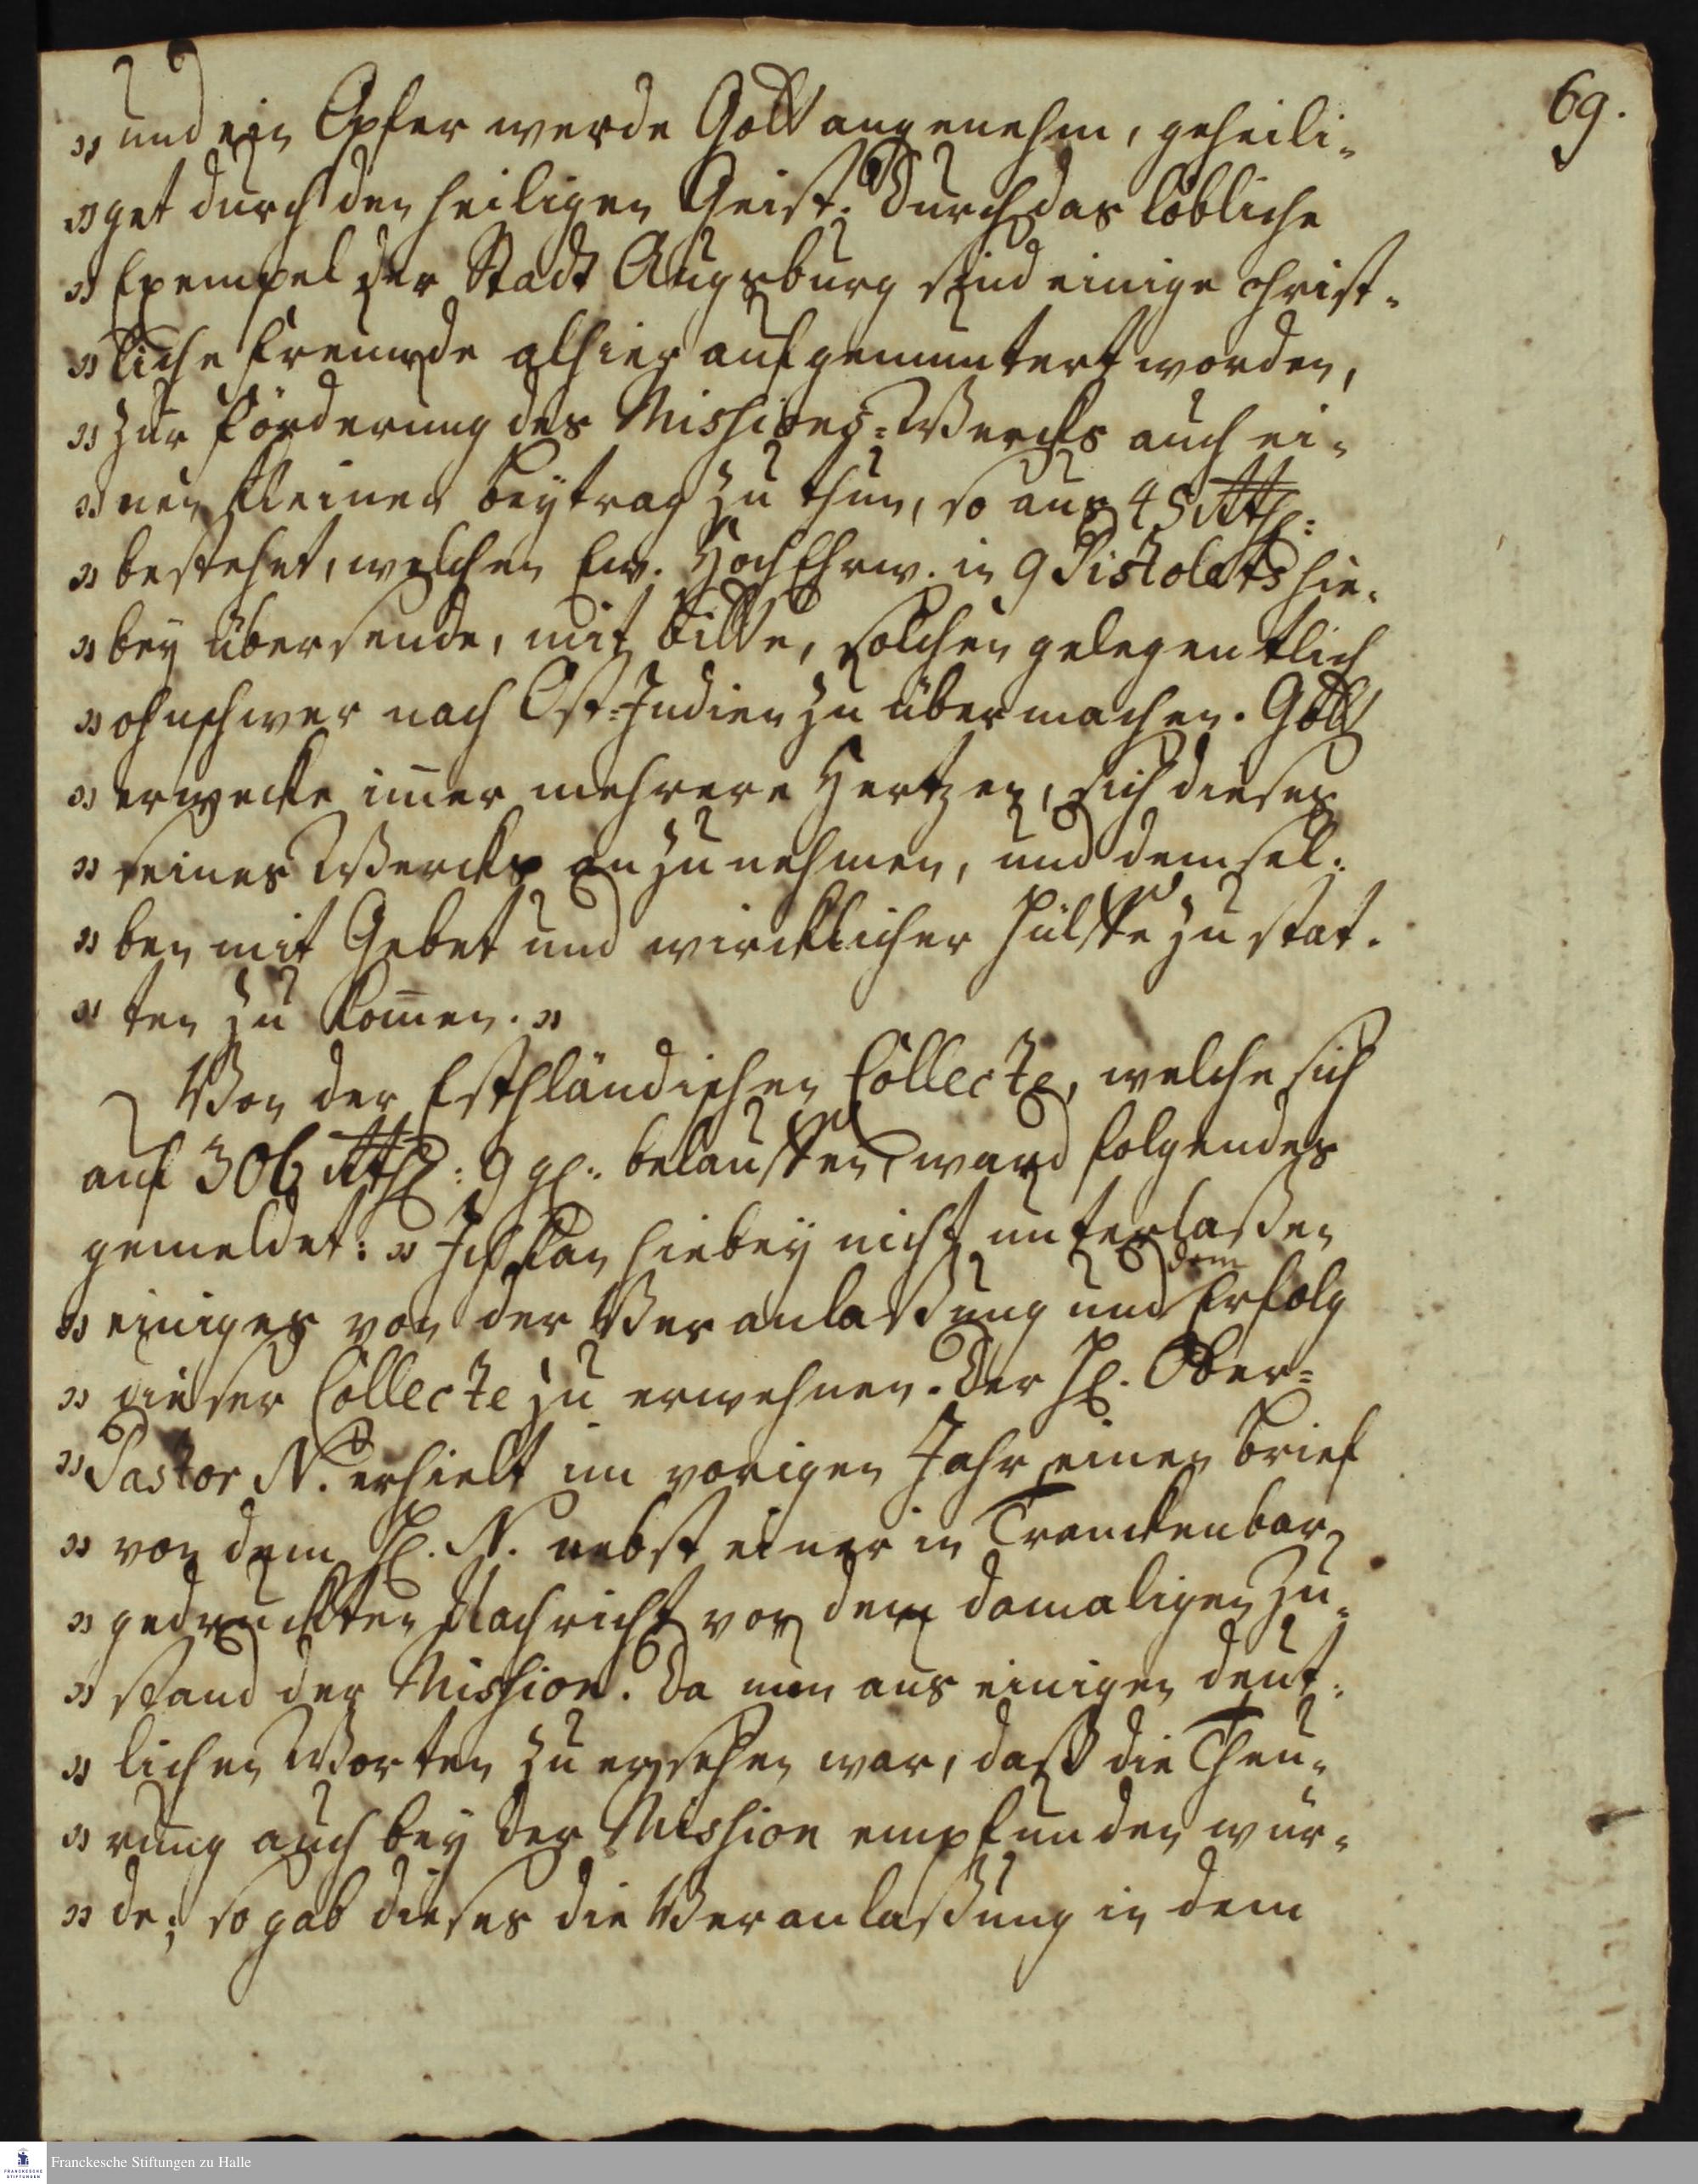 69.
„ und ein Opfer werde Gott angenehm, geheili„
„ get durch den heiligen Geist. Durch das löbliche
„ Exempel der Stadt Augsburg sind einige christ„
„ liche Freunde alhier aufgemuntert worden,
„ zur Förderung des Missions=Wercks auch ei„
„ nen kleinen Beytrag zu thun, so aus 45 Rthl:
„ bestehet, welchen Ew. HochEhrw. in 9 Pistolets hie„
„ bey übersende, mit Bitte, solchen gelegentlich
„ ohnschwer nach Ost=Indien zu übermachen. Gott
„ erwecke im̄er mehrere Hertzen, sich dieses
„ seines Wercks anzunehmen, und demsel„
„ ben mit Gebet und wircklicher Hülffe zu stat„
„ ten zu kom̄en. „
Von der Esthländischen Collecte, welche sich
auf 306 Rthl: 9 gl: belauffen, ward folgendes
gemeldet: „ Ich kan hiebey nicht unterlaßen
„ einiges von der Veranlaßung und dem Erfolg
„ dieser Collecte zu erwehnen. Der H. Ober=
„ Pastor N. erhielt im vorigen Jahr einen Brief
„ von dem H. N. nebst einer in Tranckenbar
„ gedruckten Nachricht von dem damaligen Zu„
„ stand der Mission. Da nun aus einigen deut„
„ lichen Worten zu ersehen war, daß die Theu„
„ rung auch bey der Mission empfunden wür„
„ de; so gab dieses die Veranlaßung in dem
Franckesche Stiftungen zu Halle
FRANCKESCHE
STIFTUNGEN